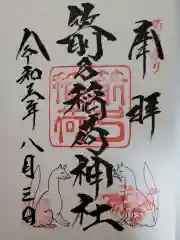 奉拝
箭弓稲荷神社
令和五年八月三日